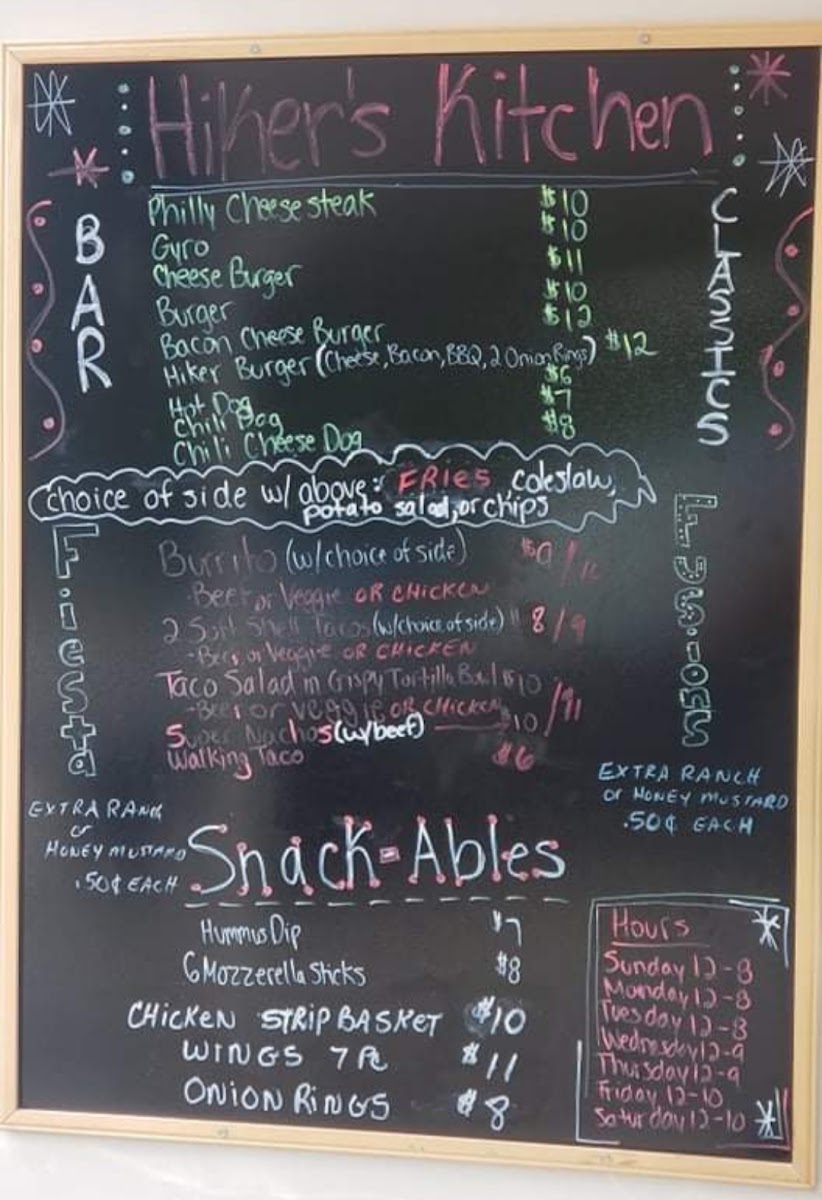 Hiker's Kitchen
BAR
CLASSICS
Philly Cheesesteak $10
Gyro $10
Cheese Burger $11
Burger $10
Bacon Cheese Burger $12
Hiker Burger (Cheese, Bacon, BBQ, 2 Onion Rings) $12
Hot Dog $6
Chili Dog $7
Chili Cheese Dog $8
choice of side w/ above: FRies, coleslaw,
potato salad, or chips
Fiesta
Fusions
Burrito (w/choice of side) $9/
-Beef or Veggie OR CHICKEN
2 Soft Shell Tacos (w/choice of side) 8/9
-Beef or Veggie OR CHICKEN
Taco Salad in Crispy Tortilla Bowl $10/11
-Beef or veggie OR CHICKEN
Super Nachos (w/beef) $10
Walking Taco $6
EXTRA RANCH
or HONEY MUSTARD
.50¢ EACH
EXTRA RANCH
or
HONEY MUSTARD
.50¢ EACH
Snack-Ables
Hummus Dip $7
6 Mozzerella Sticks $8
CHICKEN STRIP BASKET $10
WINGS 7 Pc $11
ONION RINGS $8
Hours
Sunday 12-8
Monday 12-8
Tuesday 12-8
Wednesday 12-9
Thursday 12-9
Friday 12-10
Saturday 12-10